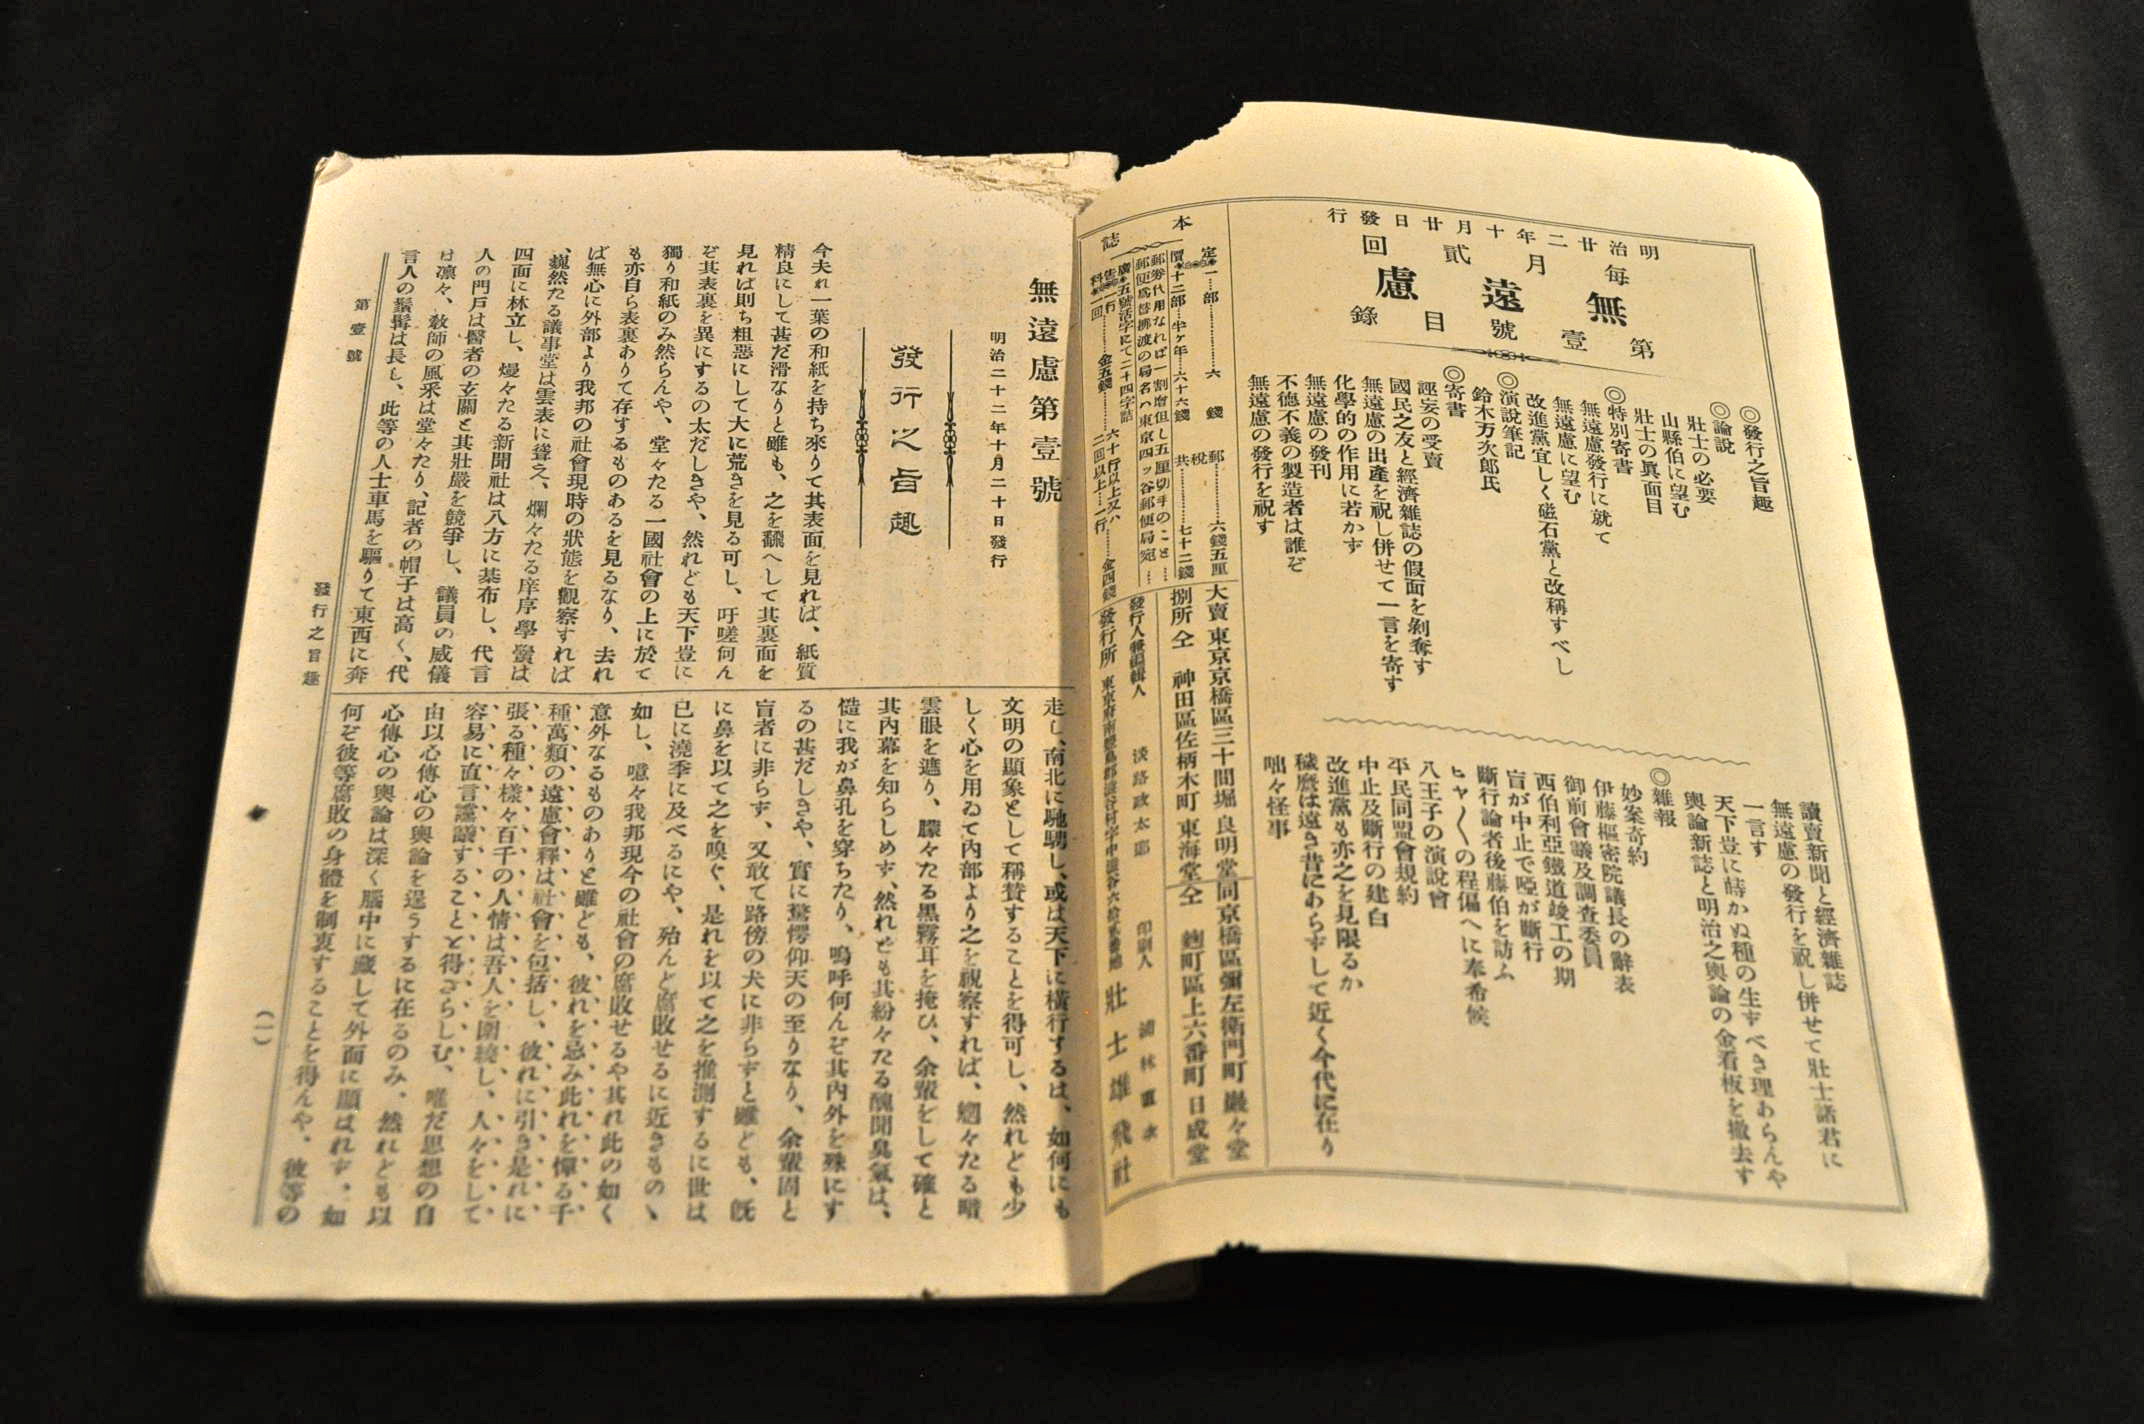 明治廿二年十月廿日發行
毎月貳回
無遠慮
第壹號目錄
◎發行之旨趣
◎論說
壯士の必要
山縣伯に望む
壯士の眞面目
◎特別寄書
無遠慮發行に就て
無遠慮に望む
改進黨宜しく磁石黨と改稱すべし
◎演說筆記
鈴木万次郎氏
◎寄書
誣妄の受賣
國民之友と經濟雜誌の假面を剝奪す
無遠慮の出產を祝し併せて一言を寄す
化學的の作用に若かず
無遠慮の發刊
不德不義の製造者は誰ぞ
無遠慮の發行を祝す
讀賣新聞と經濟雜誌
無遠慮の發行を祝し併せて壯士諸君に
一言す
天下豈に蒔かぬ種の生ずべき理あらんや
輿論新誌と明治之輿論の金看板を撤去す
◎雜報
妙案奇約
伊藤樞密院議長の辭表
御前會議及調査委員
西伯利亞鐵道竣工の期
盲が中止で啞が斷行
斷行論者後藤伯を訪ふ
ヒヤ〱の程偏へに奉希候
八王子の演說會
平民同盟會規約
中止及斷行の建白
改進黨も亦之を見限るか
穢麿は遠き昔にあらずして近く今代に在り
咄々怪事
本誌
定價
一部 六錢 郵稅共 六錢五厘
十二部 半ヶ年 六十六錢 七十二錢
郵券代用なれば一割增但し五厘切手のこと
郵便爲替拂渡の局名ハ東京四ッ谷郵便局宛
廣告料
五號活字にて二十四字詰
一行一回 金五錢 六十行以上又ハ二回以上一行 金四錢
大賣捌所
東京京橋區三十間堀 良明堂
同京橋區彌左衞門町 巖々堂
仝 神田區佐柄木町 東海堂
仝 麴町區上六番町 日成堂
發行人兼編輯人 淡路政太郎
印刷人
發行所 壯士雄飛社
無遠慮第壹號
明治二十二年十月二十日發行
發行之旨趣
今夫れ一葉の和紙を持ち來りて其表面を見れば、紙質
精良にして甚だ滑なりと雖も、之を飜へして其裏面を
見れば則ち粗惡にして大に荒きを見る可し、吁嗟何ん
ぞ其表裏を異にするの太だしきや、然れども天下豈に
獨り和紙のみ然らんや、堂々たる一國社會の上に於て
も亦自ら表裏ありて存するものあるを見るなり、去れ
ば無心に外部より我邦の社會現時の狀態を觀察すれば
、巍然たる議事堂は雲表に聳え、爛々たる庠序學黌は
四面に林立し、熳々たる新聞社は八方に棊布し、代言
人の門戶は醫者の玄關と其壯嚴を競爭し、議員の威儀
は凛々、敎師の風釆は堂々たり、記者の帽子は高く、代
言人の鬚髯は長し、此等の人士車馬を驅りて東西に奔
走し、南北に馳騁し、或は天下に橫行するは、如何にも
文明の顯象として稱賛することを得可し、然れども少
しく心を用ゐて內部より之を視察すれば、魍々たる暗
雲眼を遮り、朦々たる黑霧耳を掩ひ、余輩をして確と
其內幕を知らしめず、然れども其紛々たる醜聞臭氣は、
慥に我が鼻孔を穿ちたり、嗚呼何んぞ其內外を殊にす
るの甚だしきや、實に驚愕仰天の至りなり、余輩固と
盲者に非らず、又敢て路傍の犬に非らずと雖ども、旣
に鼻を以て之を嗅ぐ、是れを以て之を推測するに世は
已に澆季に及べるにや、殆んど腐敗せるに近きもの丶
如し、噫々我邦現今の社會の腐敗せるや其れ此の如く
意外なるものありと雖ども、彼れを忌み此れを憚る千
種萬類の遠慮會釋は社會を包括し、彼れに引き是れに
張る種々樣々百千の人情は吾人を圍繞し、人々をして
容易に直言讜議することを得ざらしむ、唯だ思想の自
由以心傳心の輿論を逞うするに在るのみ、然れども以
心傳心の輿論は深く腦中に藏して外面に顯はれず、如
何ぞ彼等腐敗の身體を制裁することを得んや、彼等の
第壹號
發行之旨趣
(一)